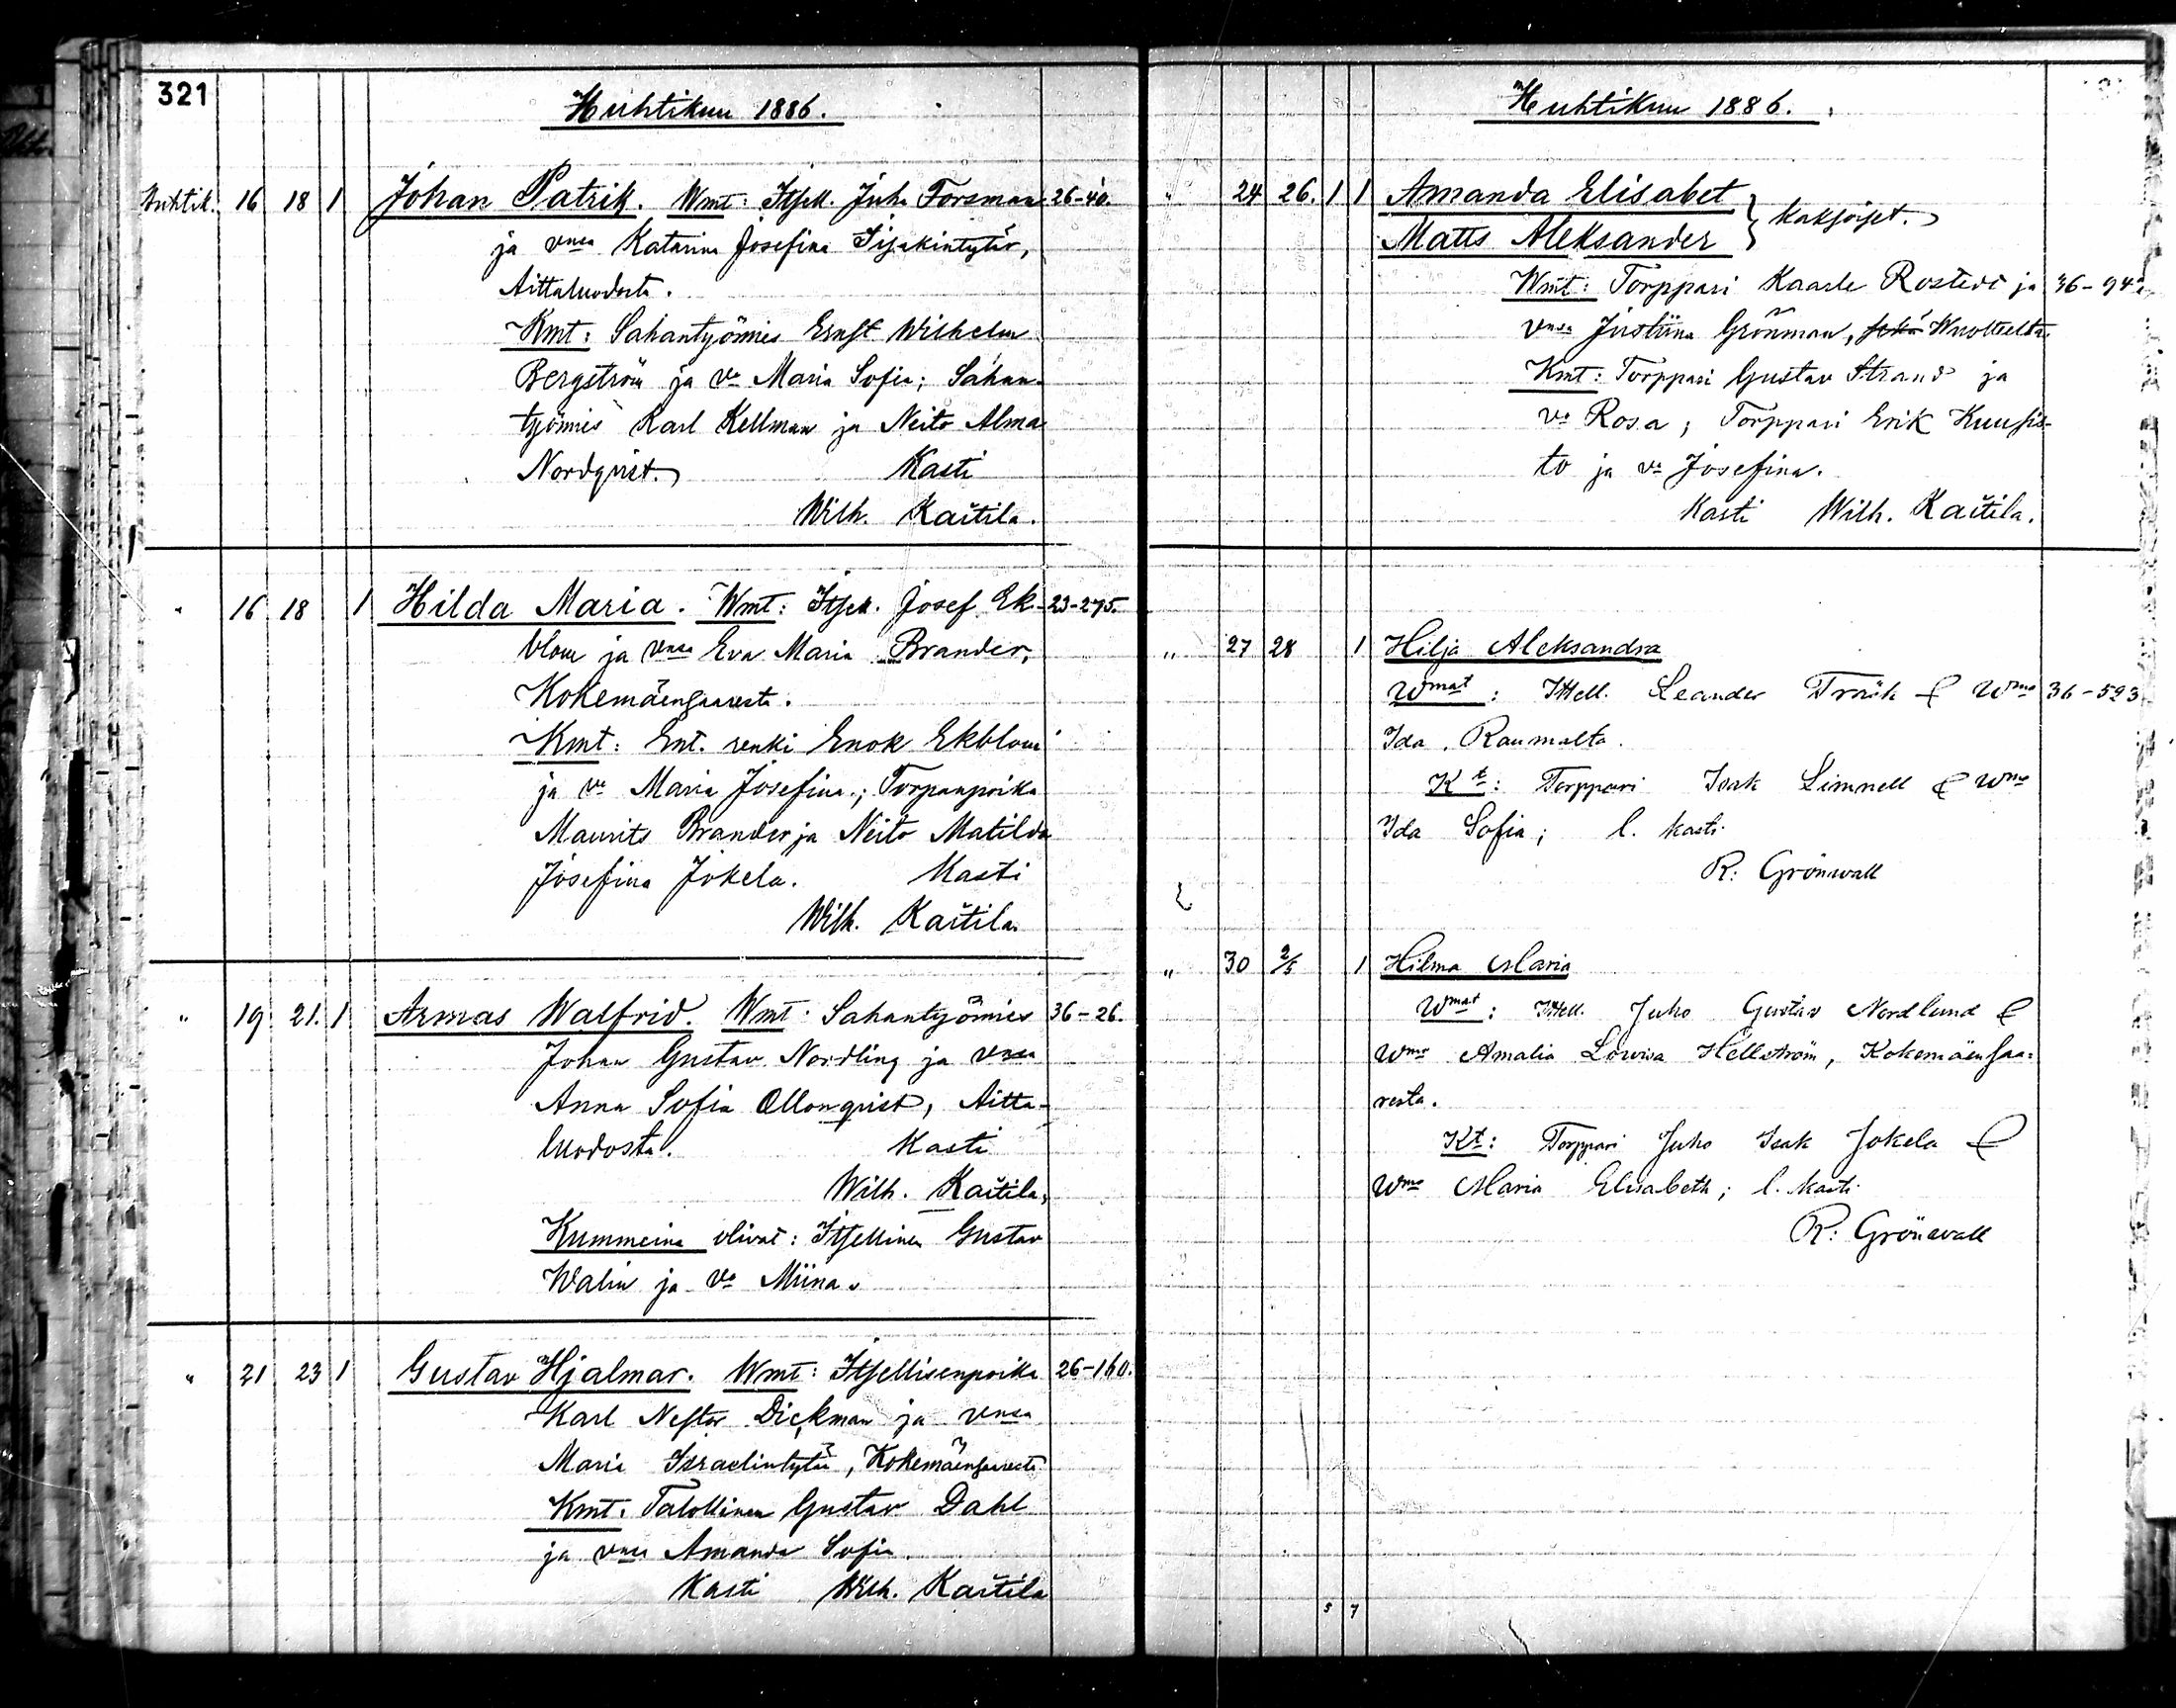 321
Huhtikuu 1886.
Huhtik. 16 18 1 Johan Patrik. Wmt: Itsell. Juha Forsman 26-40.
ja vnsa Katarina Josefina Iisakintytär,
Aittaluodosta.
Kmt: Sahantyömies Ernst Wilhelm
Bergström ja va Maria Sofia; Sahan-
työmies Karl Kellman ja Neito Alma
Nordqvist. Kasti
Wilh. Kaitila.
" 16 18 1 Hilda Maria. Wmt: Itsell. Josef Ek- 23-275.
blom ja vnsa Eva Maria Brander,
Kokemäensaaresta.
Kmt: Ent. renki Enok Ekblom
ja va Maria Josefina; Torpanpoika
Maurits Brander ja Neito Matilda
Josefina Jokela. Kasti
Wilh. Kaitila.
" 19 21. 1 Armas Walfrid. Wmt: Sahantyömies 36-26.
Johan Gustav Nordling ja vnsa
Anna Sofia Ollonqvist, Aitta-
luodosta. Kasti
Wilh. Kaitila,
Kummeina olivat: Itsellinen Gustav
Walin ja va Miina.
" 21 23 1 Gustav Hjalmar. Wmt: Itsellisenpoika 26-160.
Karl Nestor Dickman ja vnsa
Maria Israelintytär, Kokemäensaaresta
Kmt: Talollinen Gustav Dahl
ja vnsa Amanda Sofia.
Kasti Wilh. Kaitila
Huhtikuu 1886.
" 24 26. 1 1 Amanda Elisabet
Matts Aleksander } kaksoiset.
Wmt: Torppari Kaarle Rostedt ja 36-942
vnsa Justiina Grönman, Wuolteelta.
Kmt: Torppari Gustav Strand ja
va Rosa; Torppari Erik Kuusis-
to ja va Josefina.
Kasti Wilh. Kaitila.
" 27 28 1 Hilja Aleksandra
Wmat: Itsell. Leander Träsk & Wmo 36-523
Ida, Raumalta.
Kt: Torppari Isak Limnell & Wmo
Ida Sofia; l. kasti
R: Grönwall
" 30 2/5 1 Hilma Maria
Wmat: Itsell. Juho Gustav Nordlund &
Wmo Amalia Lovisa Hellström, Kokemäensaa-
resta.
Kt: Torppari Juho Isak Jokela &
Wmo Maria Elisabeth; l. kasti
R: Grönwall
5 7